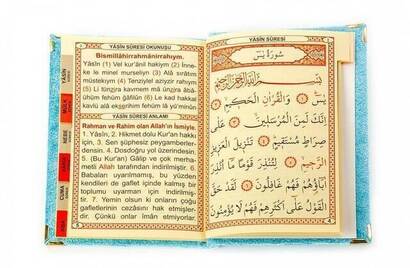 YÂSÎN SÛRESİ OKUNUŞU
Bismillâhirrahmânirrahıym.
Yâsîn (1) Vel kur'ânil hakiym (2) İnne-
ke le minel murseliyn (3) Alâ sırâtım
müstekıym (4) Tenziylel aziyzir rahıym
(5) Li tünzira kavmem mâ ünzira âbâ-
ühüm fehüm ğâfilûn (6) Le kad hakkal
kavlü alâ ekserihim fehüm lâ yü'minûn
YÂSÎN SÛRESİ ANLAMI
Rahman ve Rahim olan Allah'ın İsmiyle.
1. Yâsîn, 2. Hikmet dolu Kur'an hakkı
için, 3. Sen şüphesiz peygamberler-
densin. 4. Dosdoğru yol üzerindesin.
5. (Bu Kur'an) Gâlip ve çok merha-
metli Allah tarafından indirilmiştir. 6.
Babaları uyarılmamış, bu yüzden
kendileri de gaflet içinde kalmış bir
toplumu uyarman için indirilmiş-
tir. 7. Yemin olsun ki onların çoğu
gafletlerinin cezasını hak etmişler-
dir. Çünkü onlar îmân etmiyorlar.
YÂSÎN
MÜLK
NEBE
CUMA
YÂSÎN SÛRESİ
سُورَةُ يٰسٓ
بِسْمِ اللّٰهِ الرَّحْمٰنِ الرَّحِيمِ
يٰسٓ ﴿١﴾ وَالْقُرْاٰنِ الْحَكِيمِ ﴿٢﴾
اِنَّكَ لَمِنَ الْمُرْسَلِينَ ﴿٣﴾ عَلٰى
صِرَاطٍ مُسْتَقِيمٍ ﴿٤﴾ تَنْزِيلَ الْعَزِيزِ
الرَّحِيمِ ﴿٥﴾ لِتُنْذِرَ قَوْمًا مَٓا اُنْذِرَ
اٰبَٓاؤُهُمْ فَهُمْ غَافِلُونَ ﴿٦﴾ لَقَدْ حَقَّ
الْقَوْلُ عَلٰٓى اَكْثَرِهِمْ فَهُمْ لَا يُؤْمِنُونَ